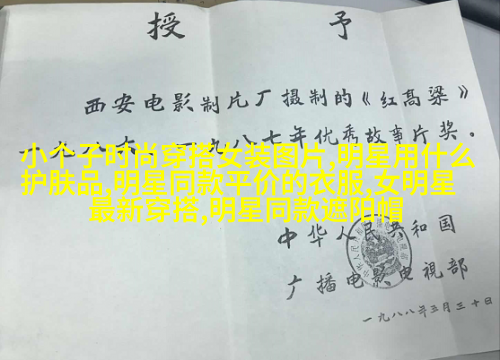 授予
西安电影制片厂摄制的《红高粱》
一九八七年优秀故事片奖。
小个子时尚穿搭女装图片,明星用什么
护肤品,明星同款平价的衣服,女明星
最新穿搭,明星同款遮阳帽
中华人民共和国
广播电影电视部
一九八八年三月三十日